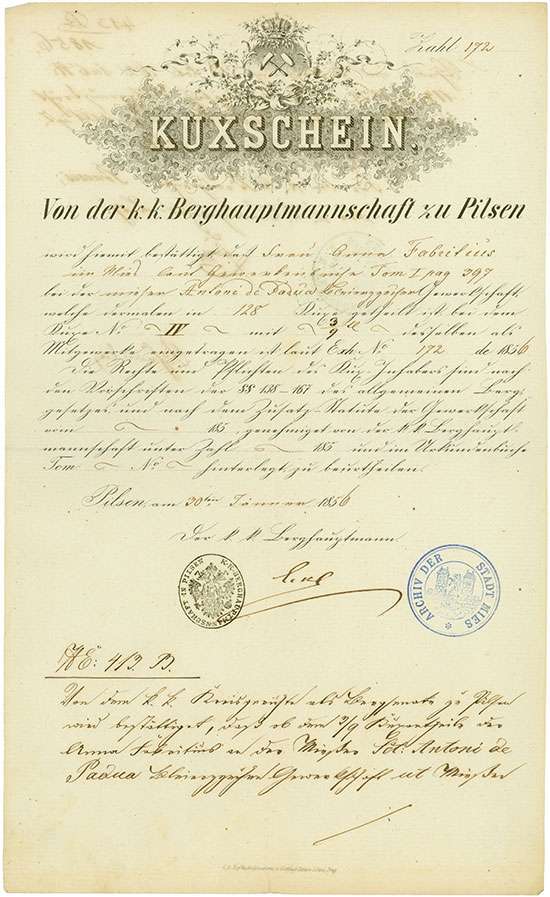 Zahl 172
KUXSCHEIN.
Von der k. k. Berghauptmannschaft zu Pilsen
wird hiemit bestättigt daß Frau Anna Fabritius
im Mies laut Gewerkenbuche Tom I pag 397
bei der Antoni de Padua Bleierzzechen Gewerkschaft,
welche dermalen in 128 Kuxe getheilt ist bei dem
Kuxe No IV mit 3/9 tl desselben als
Mitgewerke eingetragen ist laut Exh. No 172 de 1856
Die Rechte und Pflichten des Kux-Inhabers sind nach
den Vorschriften der §§ 138-167 des allgemeinen Berg-
gesetzes und nach dem Zusatz-Statute der Gewerkschaft
vom 185 genehmiget von der k. k. Berghaupt-
mannschaft unter Zahl 185 und im Urkundenbuche
Tom No hinterlegt, zu beurtheilen.
Pilsen, am 30ten Jänner 1856
Der k. k. Berghauptmann
K. K. BERGHAUPTMANNSCHAFT IN PILSEN
ARCHIV DER STADT MIES
NE: 413. B.
Von dem k. k. Kreisgerichte als Bergsenate zu Pilsen
wird bestättiget, daß ob den 3/9 Kuxentheile der
Anna Fabritius an der Mieser Set. Antoni de
Padua Bleierzzechen Gewerkschaft ut Mieser